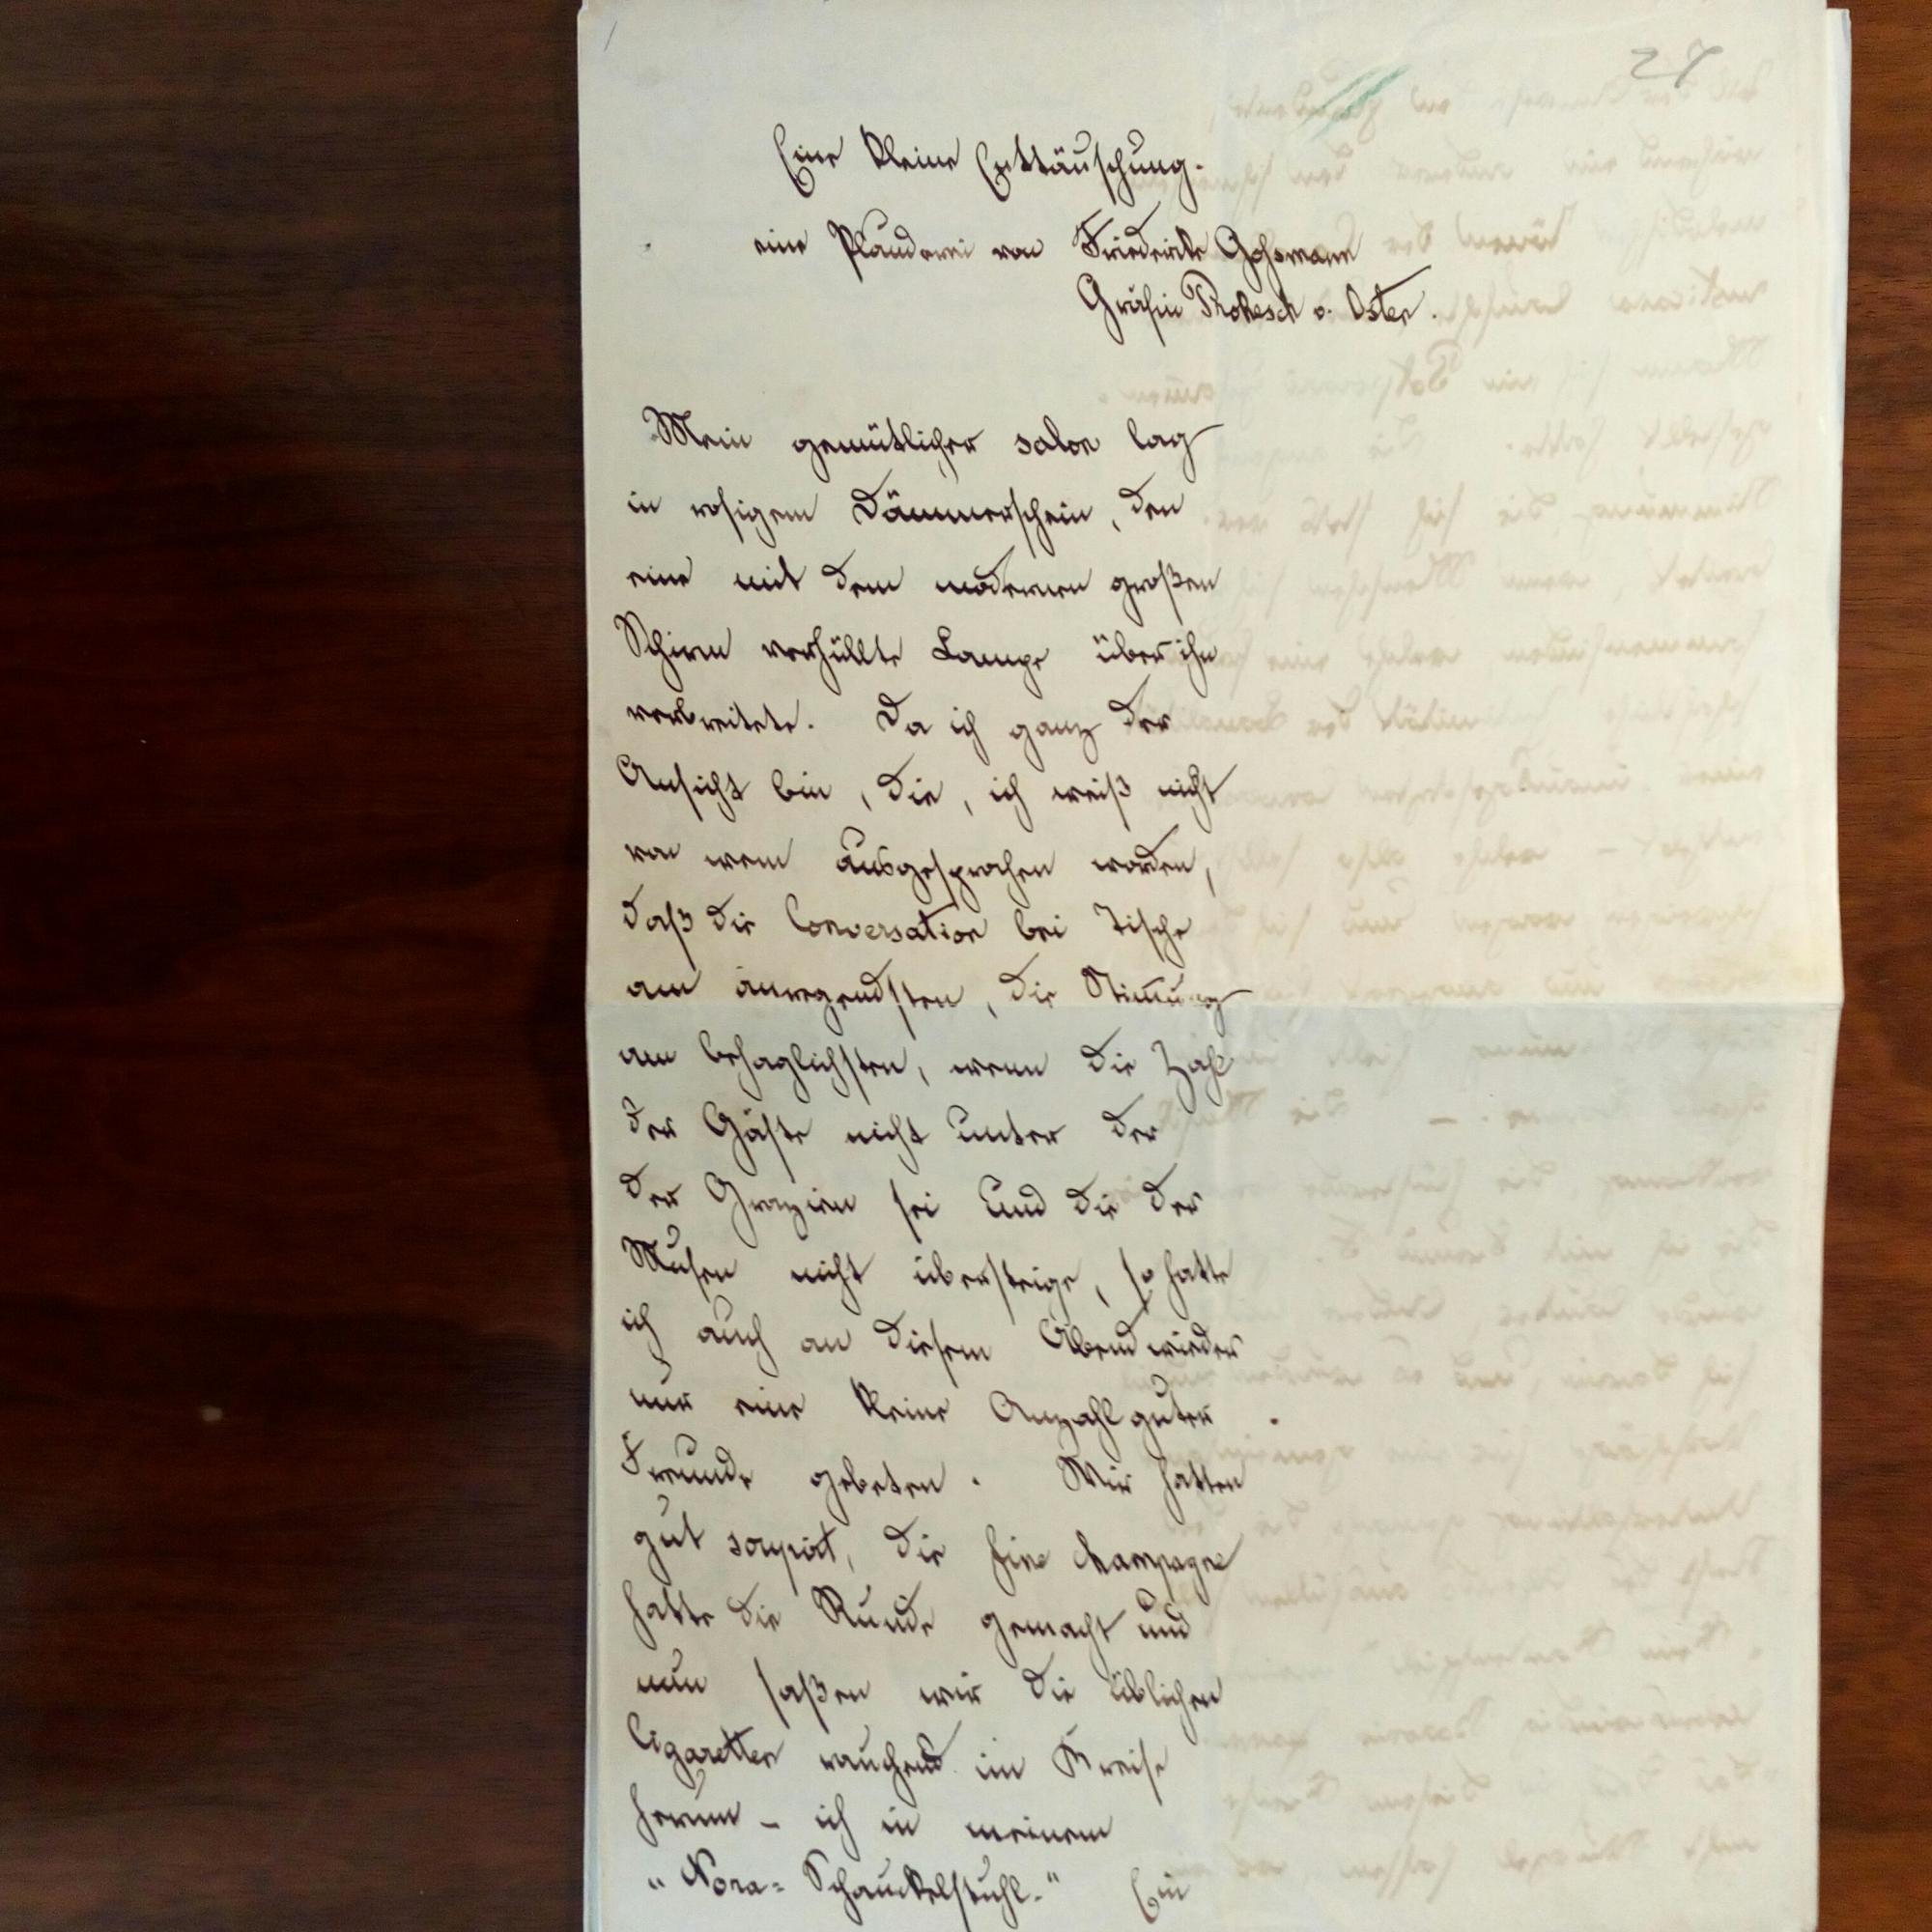 27
Eine kleine Enttäuschung.
eine Plauderei von Friederike Goßmann
Gräfin Prokesch v. Osten.
Mein gemütlicher Salon lag
in rosigem Dämmerschein, den
eine mit dem modernen großen
Schirm verhüllte Lampe über ihn
verbreitete. Da ich ganz der
Ansicht bin, die, ich weiß nicht
von wem ausgesprochen worden,
daß die Conversation bei Tische
am anregendsten, die Stimmung
am behaglichsten, wenn die Zahl
der Gäste nicht unter der
der Grazien sei und die der
Musen nicht übersteige, so hatte
ich auch an diesem Abend wieder
nur eine kleine Anzahl guter
Freunde gebeten. Wir hatten
gut soupirt, die fine champagne
hatte die Runde gemacht und
nun saßen wir die üblichen
Cigaretten rauchend im Kreise
herum – ich in meinem
"Nora-Schauckelstuhl." Ein